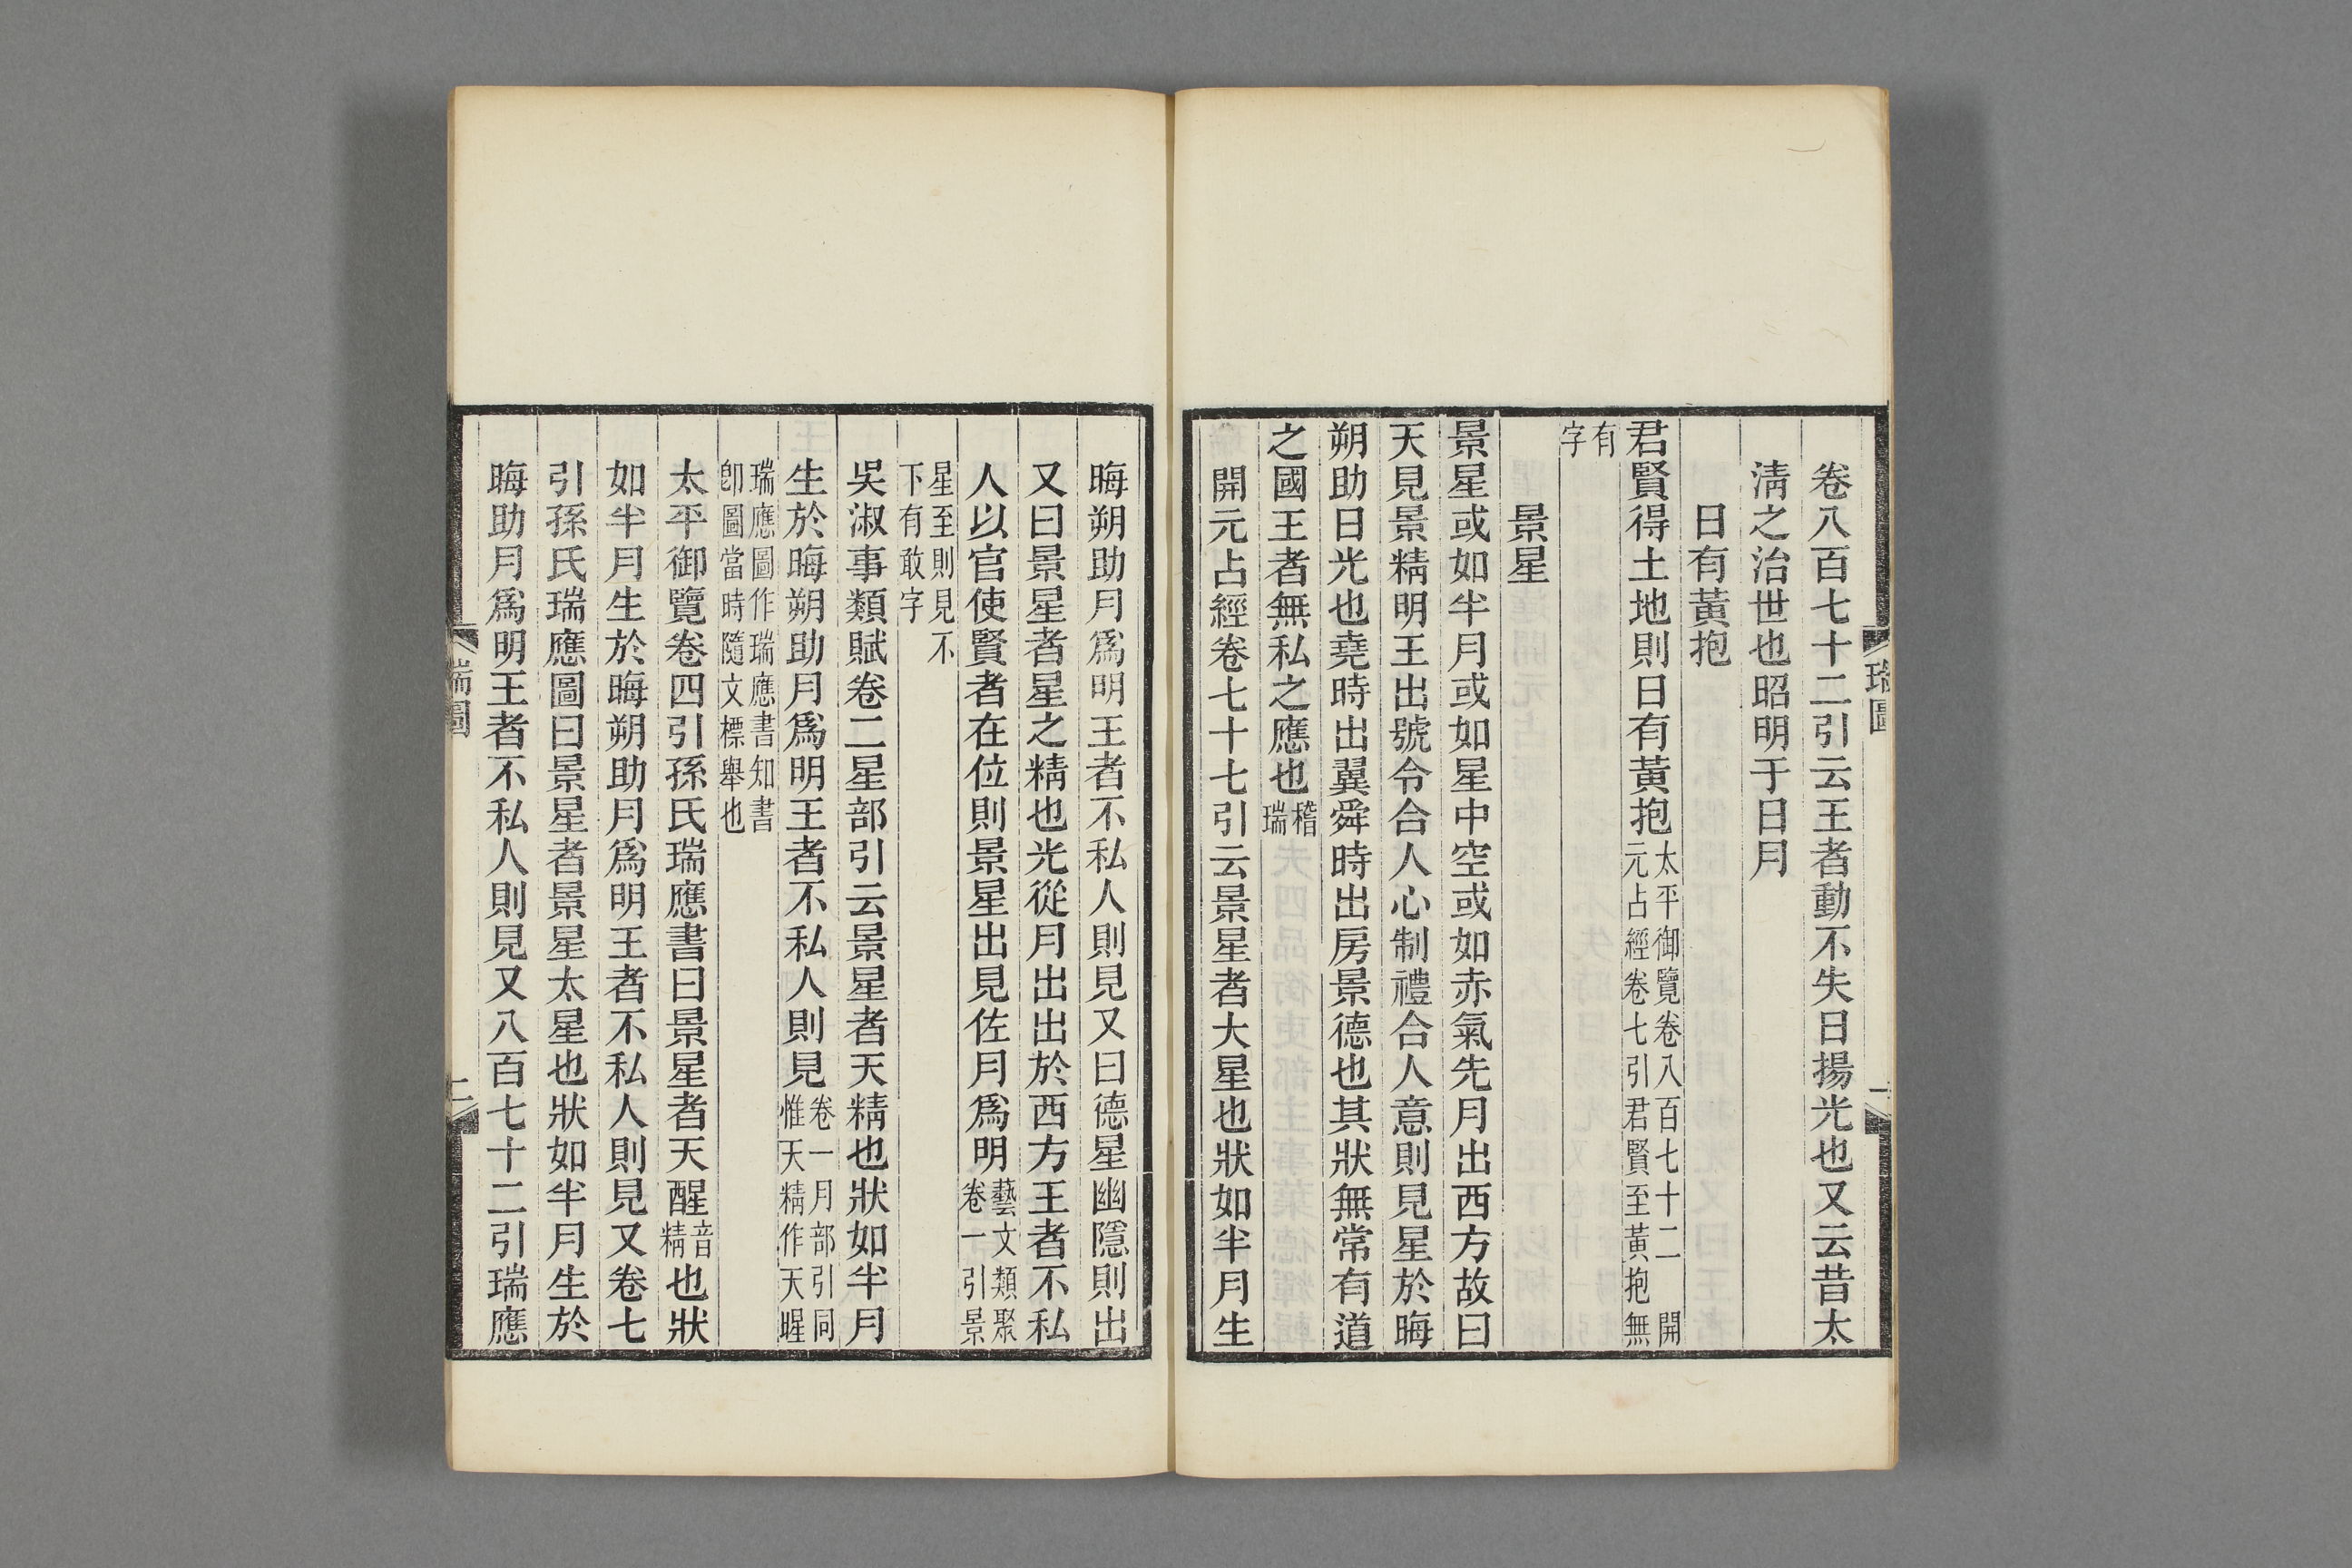 卷八百七十二引云王者動不失日揚光也又云昔太
淸之治世也昭明于日月
日有黃抱
君賢得土地則日有黃抱太平御覽卷八百七十二 開元占經卷七引君賢至黃抱無
有字
景星
景星或如半月或如星中空或如赤氣先月出西方故曰
天見景精明王出號令合人心制禮合人意則見星於晦
朔助日光也堯時出翼舜時出房景德也其狀無常有道
之國王者無私之應也稽瑞
開元占經卷七十七引云景星者大星也狀如半月生
瑞圖
晦朔助月爲明王者不私人則見又曰德星幽隱則出
又曰景星者星之精也光從月出出於西方王者不私
人以官使賢者在位則景星出見佐月爲明藝文類聚卷一引景
星至則見不下有敢字
吳淑事類賦卷二星部引云景星者天精也狀如半月
生於晦朔助月爲明王者不私人則見卷一月部引同惟天精作天暒
瑞應圖作瑞應書知書卽圖當時隨文標舉也
太平御覽卷四引孫氏瑞應書曰景星者天醒音精也狀
如半月生於晦朔助月爲明王者不私人則見又卷七
引孫氏瑞應圖曰景星者景星太星也狀如半月生於
晦助月爲明王者不私人則見又八百七十二引瑞應
瑞圖
二